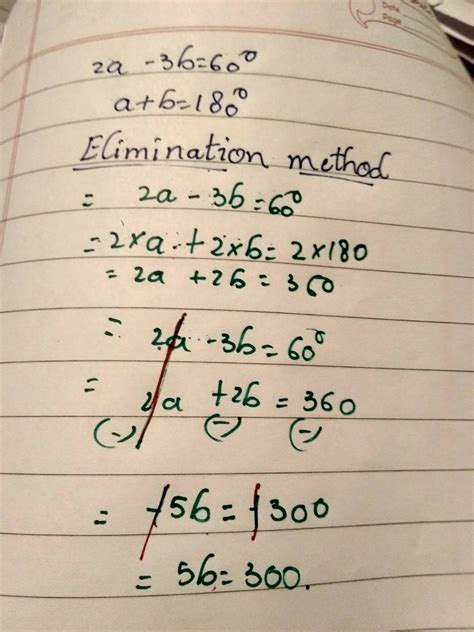 Date
Page
2a - 3b = 60°
a + b = 180°
Elimination method
= 2a - 3b = 60°
= 2×a + 2×b = 2×180
= 2a + 2b = 360
= 2a - 3b = 60°
= 2a + 2b = 360
(-) (-) (-)
= -5b = -300
= 5b = 300.